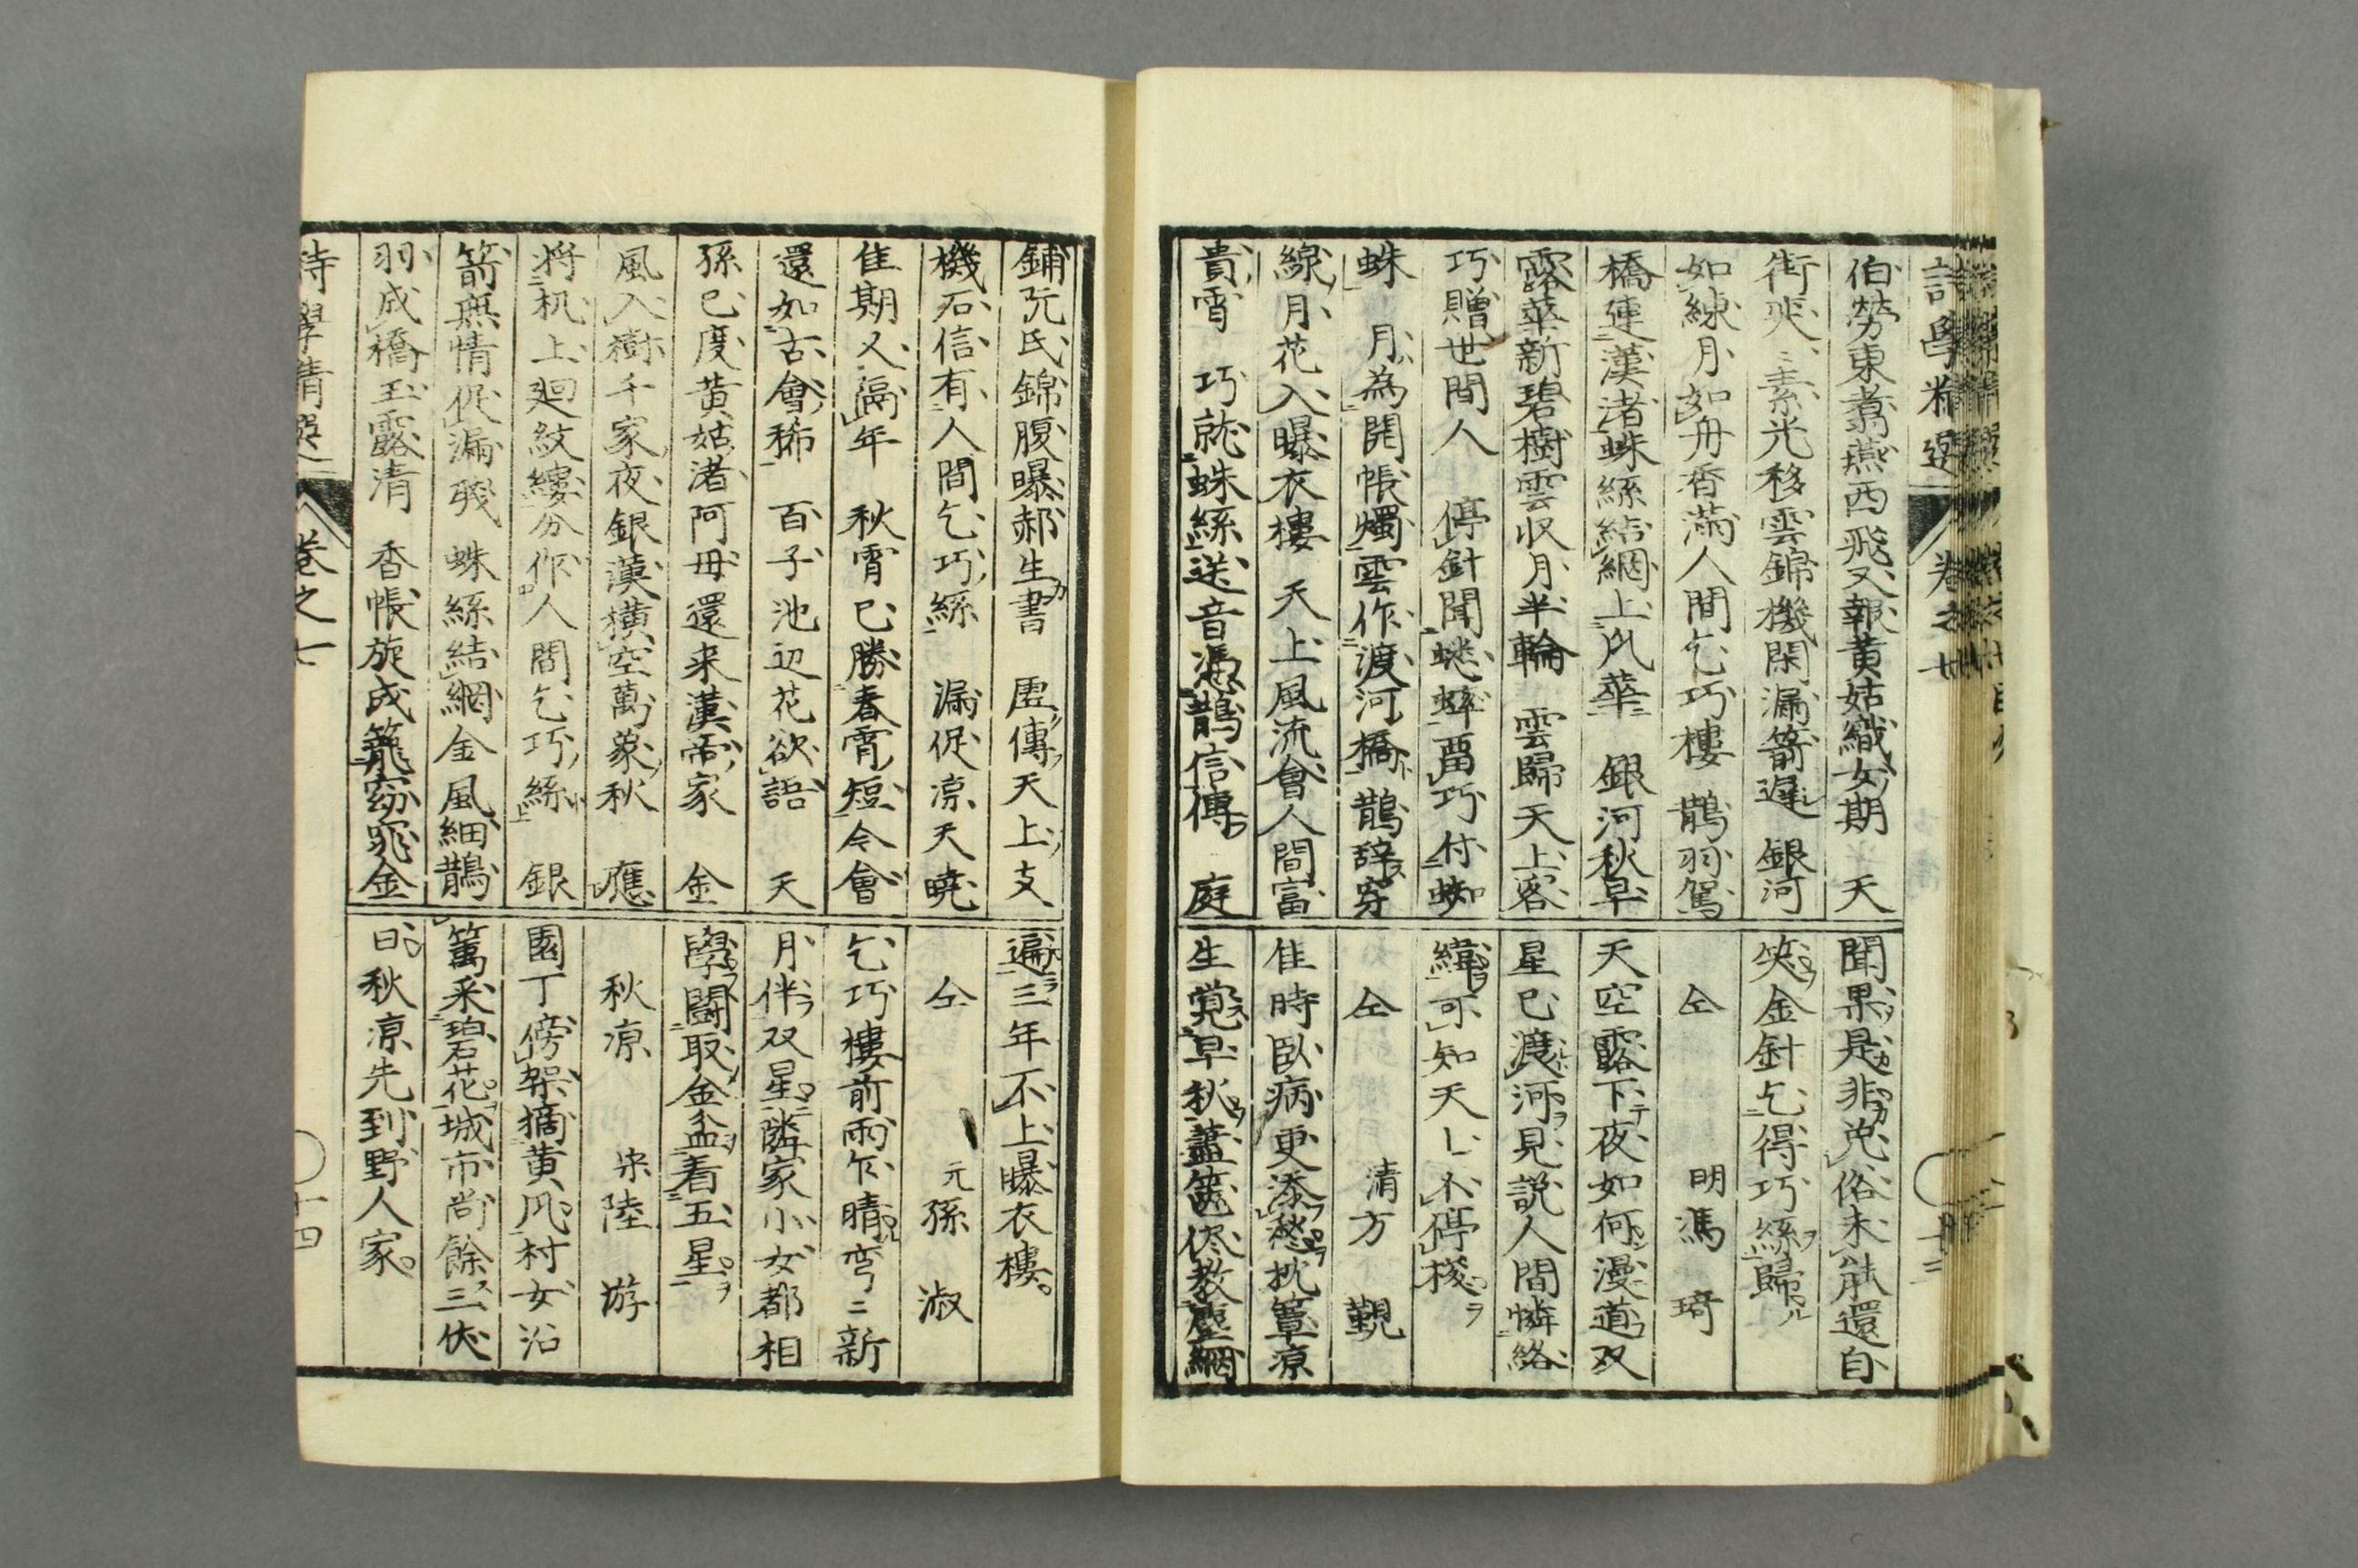 詩學精選 卷之七
伯勞東翥燕西飛又報黄姑織女期 天
街爽〻素光移雲錦機閑漏箭遲 銀河
如練月如舟香滿人間乞巧樓 鵲羽駕
橋連漢渚蛛絲結網上瓜華 銀河秋早
露華新碧樹雲収月半輪 雲歸天上客
巧贈世間人 停針聞蟋蟀畄巧付蜘
蛛 月為開帳燭雲作渡河橋 鵲辞穿
線月花入曝衣樓 天上風流會人間富
貴宵 巧就蛛絲送音憑鵲信傳 庭
聞果是非免俗未能還自
笑金針乞得巧絲歸
仝 明馮琦
天空露下夜如何漫道双
星已渡河見説人間憐絡
緯可知天上不停梭
仝 清方覲
佳時臥病更添愁枕簟凉
生覚早秋蠹篋侭教塵網
鋪阮氏錦腹曝郝生書 虚傳天上支
機石信有人間乞巧絲 漏促凉天曉
佳期又隔年 秋宵已勝春宵短今會
還如古會稀 百子池辺花欲語 天
孫已度黄姑渚阿母還来漢帝家 金
風入樹千家夜銀漢横空萬象秋 應
将机上廻紋縷分作人間乞巧絲 銀
箭無情促漏残 蛛絲結網金風細鵲
羽成橋玉露清 香帳旋成籠窈窕金
遍三年不上曝衣樓
仝 元孫淑
乞巧樓前雨乍晴弯〻新
月伴双星隣家小女都相
學闘取金盆看五星
秋凉 宋陸游
園丁傍架摘黄瓜村女沿
籬采碧花城市尚餘三伏
日秋凉先到野人家
詩學精選 卷之七 十四